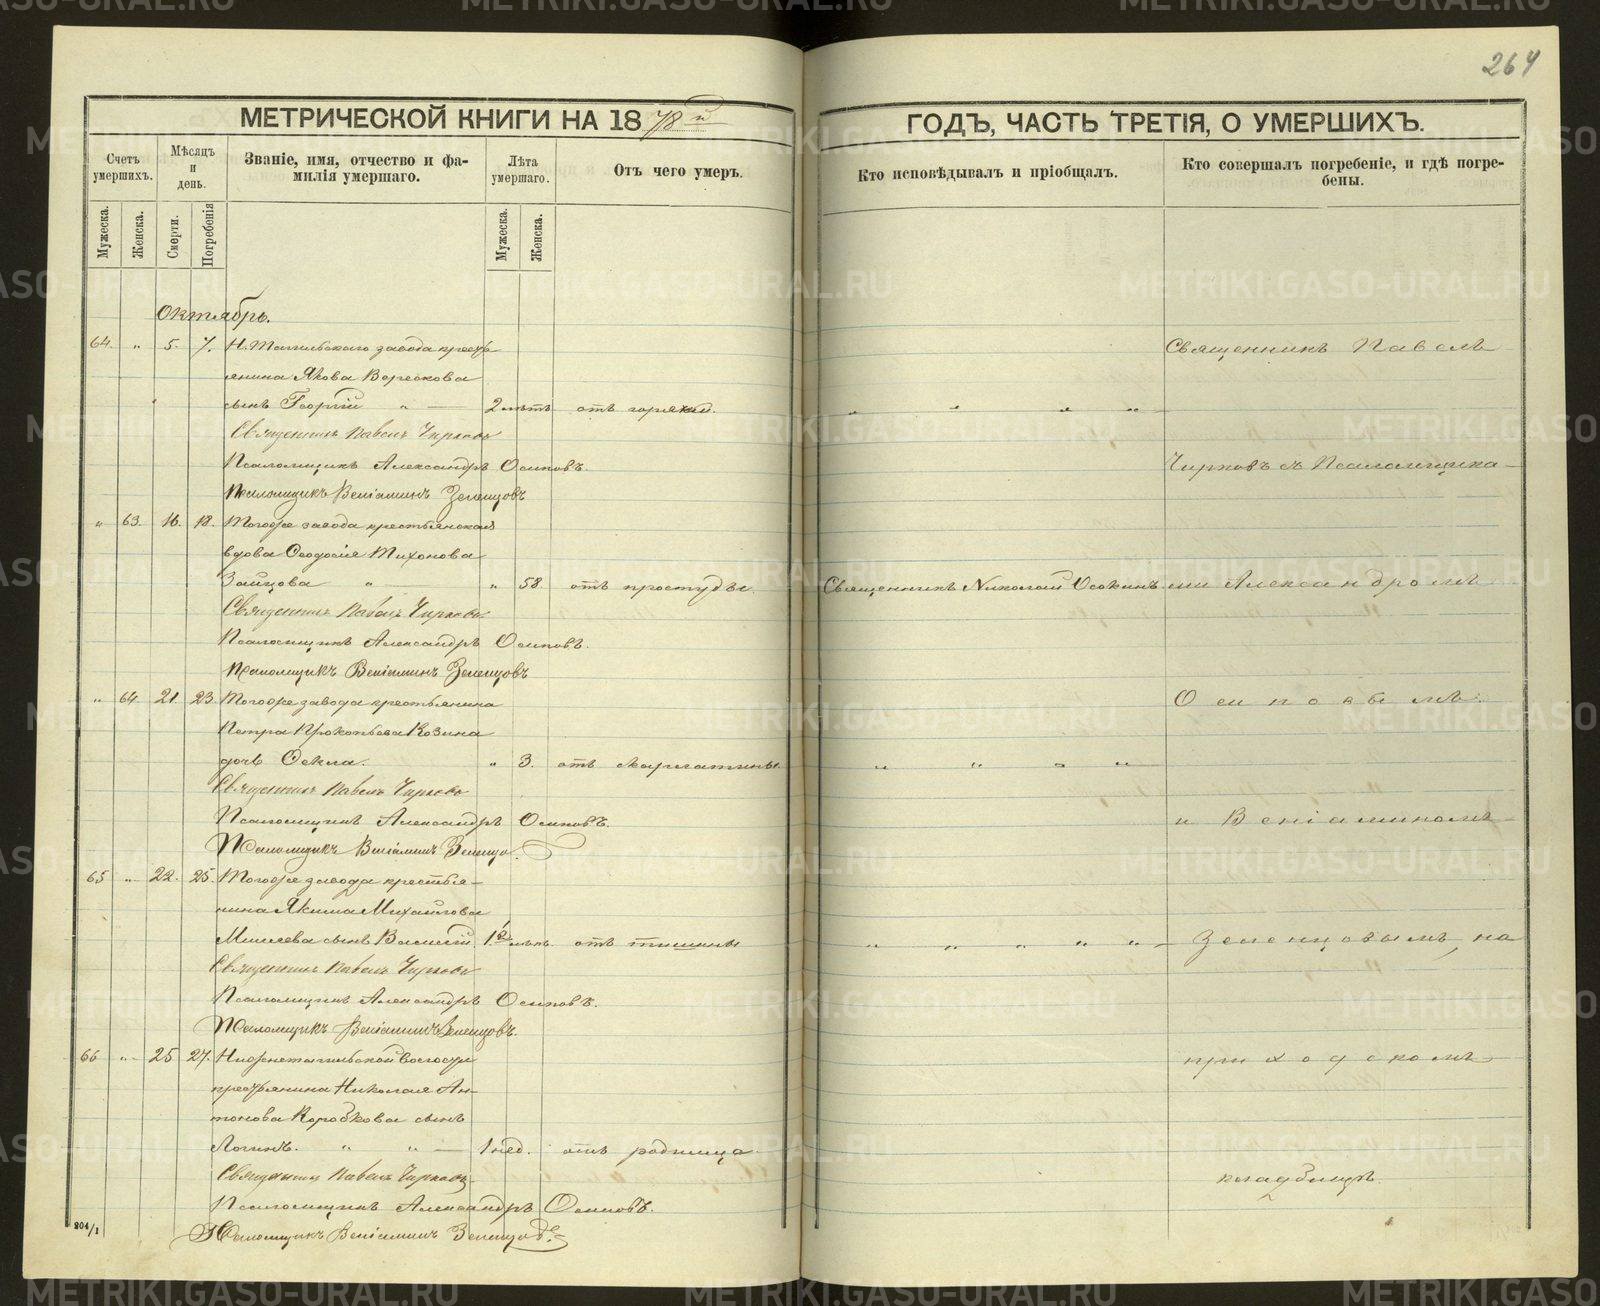 264
МЕТРИЧЕСКОЙ КНИГИ НА 1878й
ГОДЪ, ЧАСТЬ ТРЕТІЯ, О УМЕРШИХЪ.
Счетъ умершихъ.
Мѣсяцъ и день.
Званіе, имя, отчество и фа-
милія умершаго.
Лѣта умершаго.
Отъ чего умеръ.
Кто исповѣдывалъ и пріобщалъ.
Кто совершалъ погребеніе, и гдѣ погре-
бены.
Мужеска.
Женска.
Смерти.
Погребенія
Мужеска.
Женска.
Октябрь.
64. " 5. 7. Н. Тагильскаго завода кресть
Священникъ Павелъ
янина Якова
сынъ Георгій " — 2 лѣтъ отъ горячки. " " " "
Священникъ Павелъ Чирковъ
Псаломщикъ Александръ Осиповъ.
Чирковъ съ Псаломщика
Псаломщикъ Веніаминъ Зеленцовъ
" 63. 16. 18. Тогоже завода крестьянская
вдова Ѳеодосія Тихонова
Зайцова " " 58 отъ простуды. Священникъ Николай Осокинъ ми Александромъ
Священникъ Павелъ Чирковъ
Псаломщикъ Александръ Осиповъ.
Псаломщикъ Веніаминъ Зеленцовъ
" 64 21. 23. Тогоже завода крестьянина
Осиповымъ
Петра Прокопьева Козина
дочь Ѳекла. " 3. отъ скарлатины. " " " "
Священникъ Павелъ Чирковъ
Псаломщикъ Александръ Осиповъ.
и Веніаминомъ
Псаломщикъ Веніаминъ Зеленцо
65 " 22. 25. Тогоже завода крестья-
нина Якима Михайлова
сынъ Василій отъ " " " " " Зеленцовымъ, на
Священникъ Павелъ Чирковъ
Псаломщикъ Александръ Осиповъ.
Псаломщикъ Веніаминъ Зеленцовъ.
66 " 25 27. Нижнетагильской волости
приходскомъ
крестьянина Николая Ан-
тонова Коробкова сынъ
Логинъ. " " — 1 нед. отъ родимца.
Священникъ Павелъ Чирковъ
кладбищѣ.
Псаломщикъ Александръ Осиповъ.
204/1
Псаломщикъ Веніаминъ Зеленцовъ
METRIKI.GASO-URAL.RU